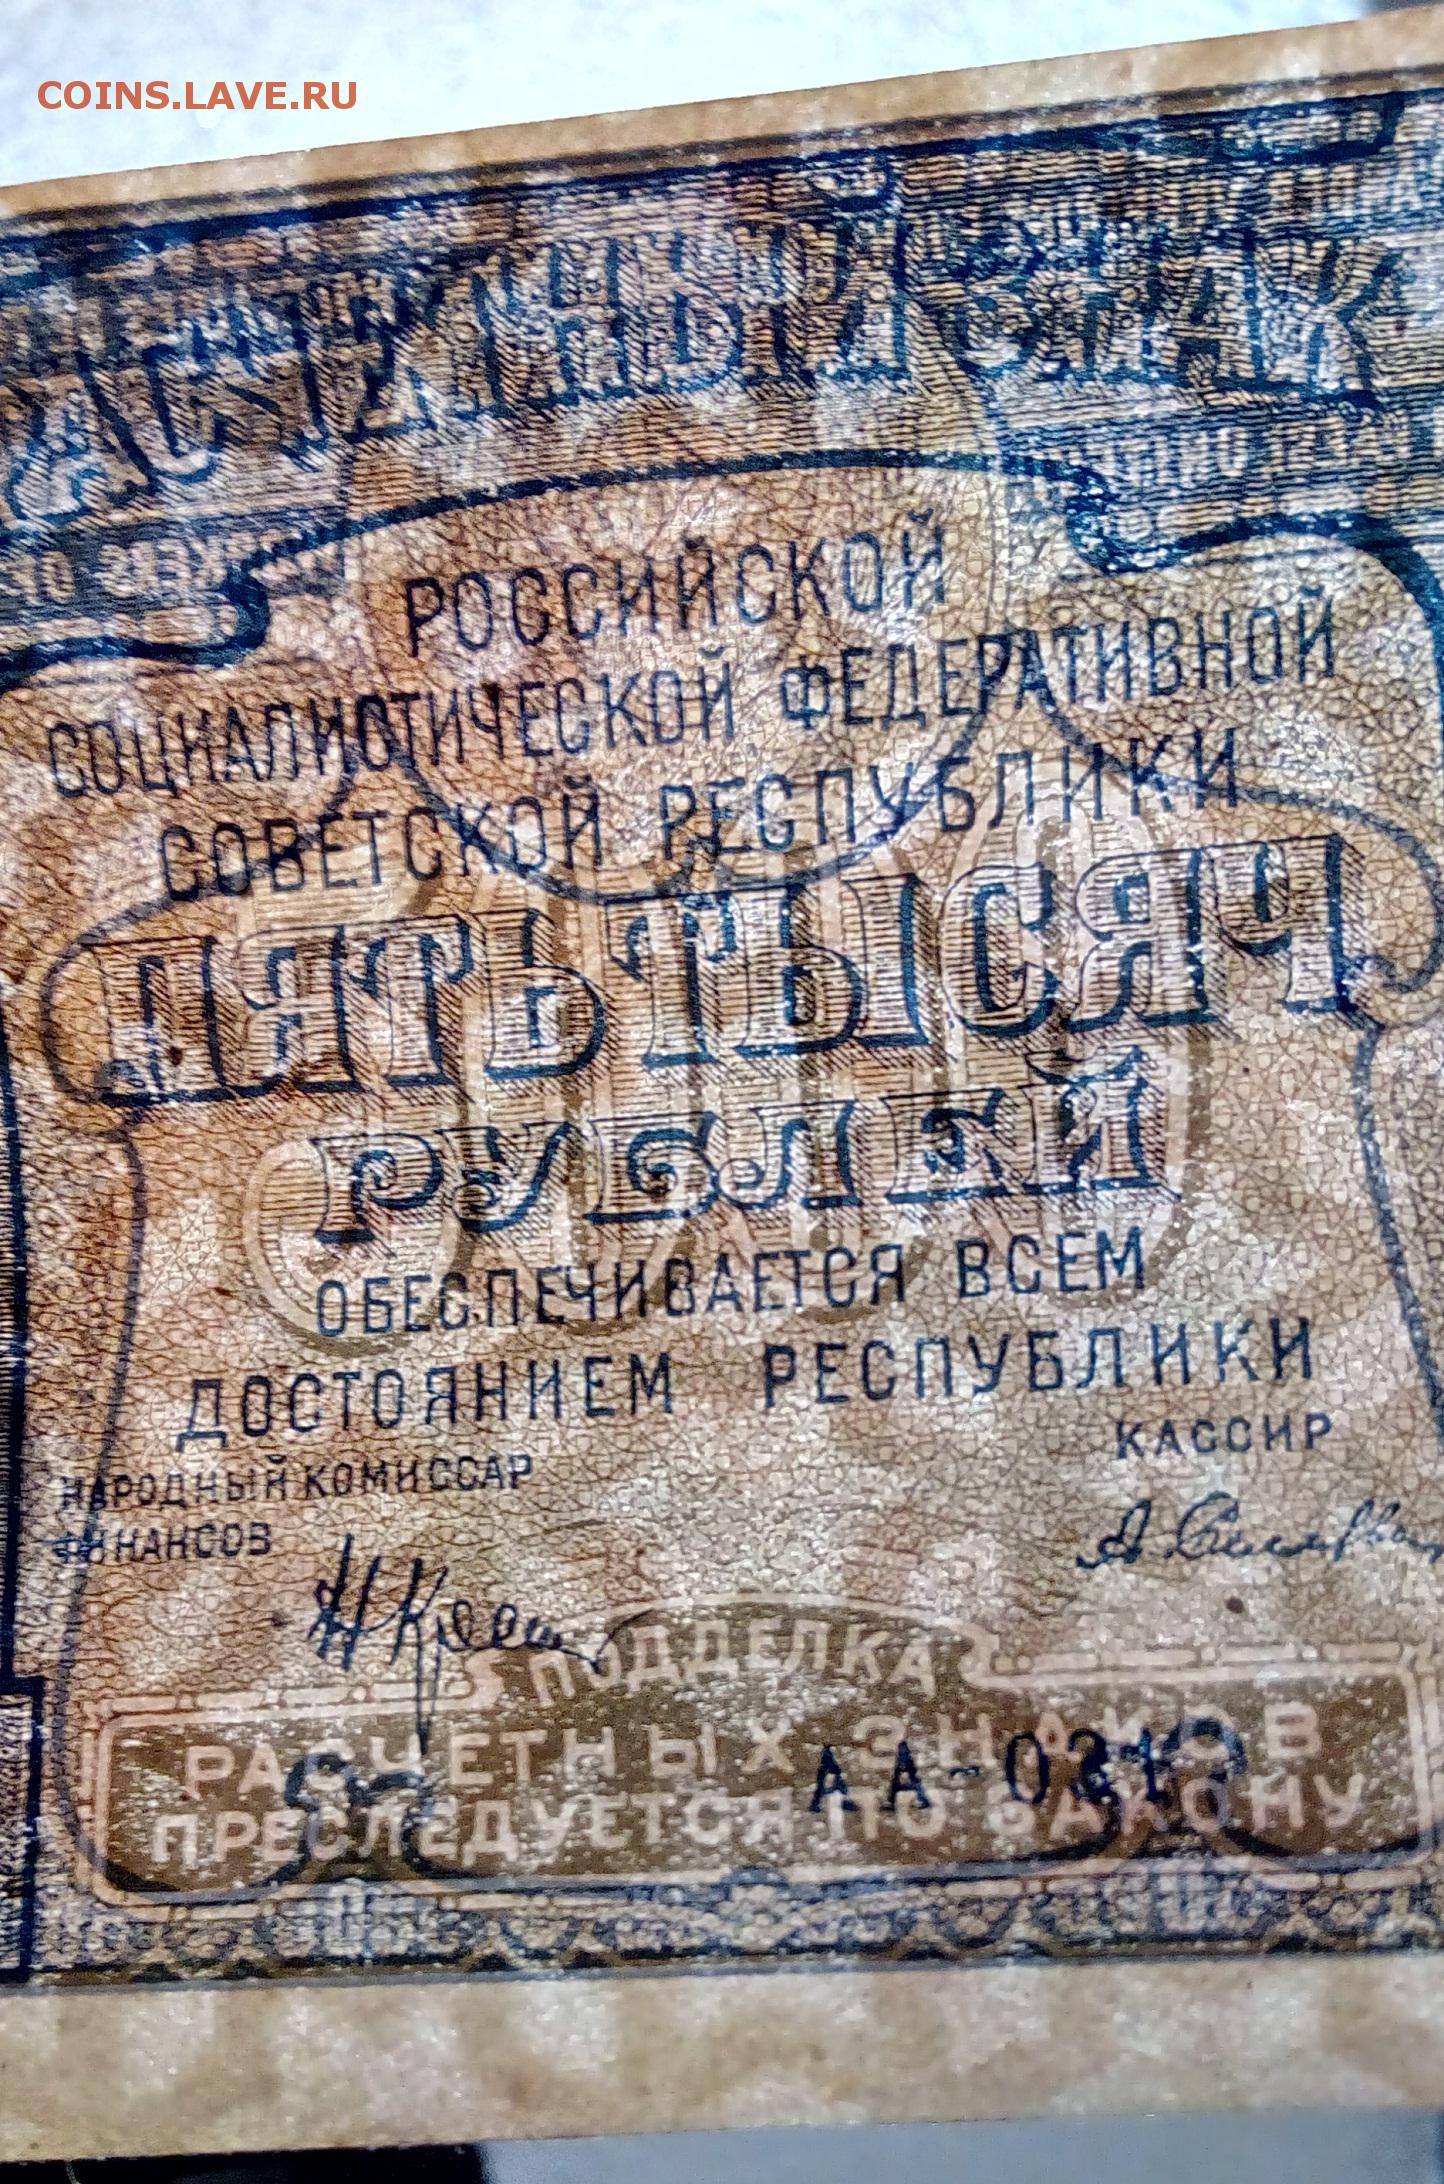 COINS.LAVE.RU
РАСЧЕТНЫЙ ЗНАК
РОССИЙСКОЙ
СОЦИАЛИСТИЧЕСКОЙ ФЕДЕРАТИВНОЙ
СОВЕТСКОЙ РЕСПУБЛИКИ
ПЯТЬ ТЫСЯЧ
РУБЛЕЙ
ОБЕСПЕЧИВАЕТСЯ ВСЕМ
ДОСТОЯНИЕМ РЕСПУБЛИКИ
НАРОДНЫЙ КОМИССАР
ФИНАНСОВ
КАССИР
ПОДДЕЛКА
РАСЧЕТНЫХ ЗНАКОВ
ПРЕСЛЕДУЕТСЯ ПО ЗАКОНУ